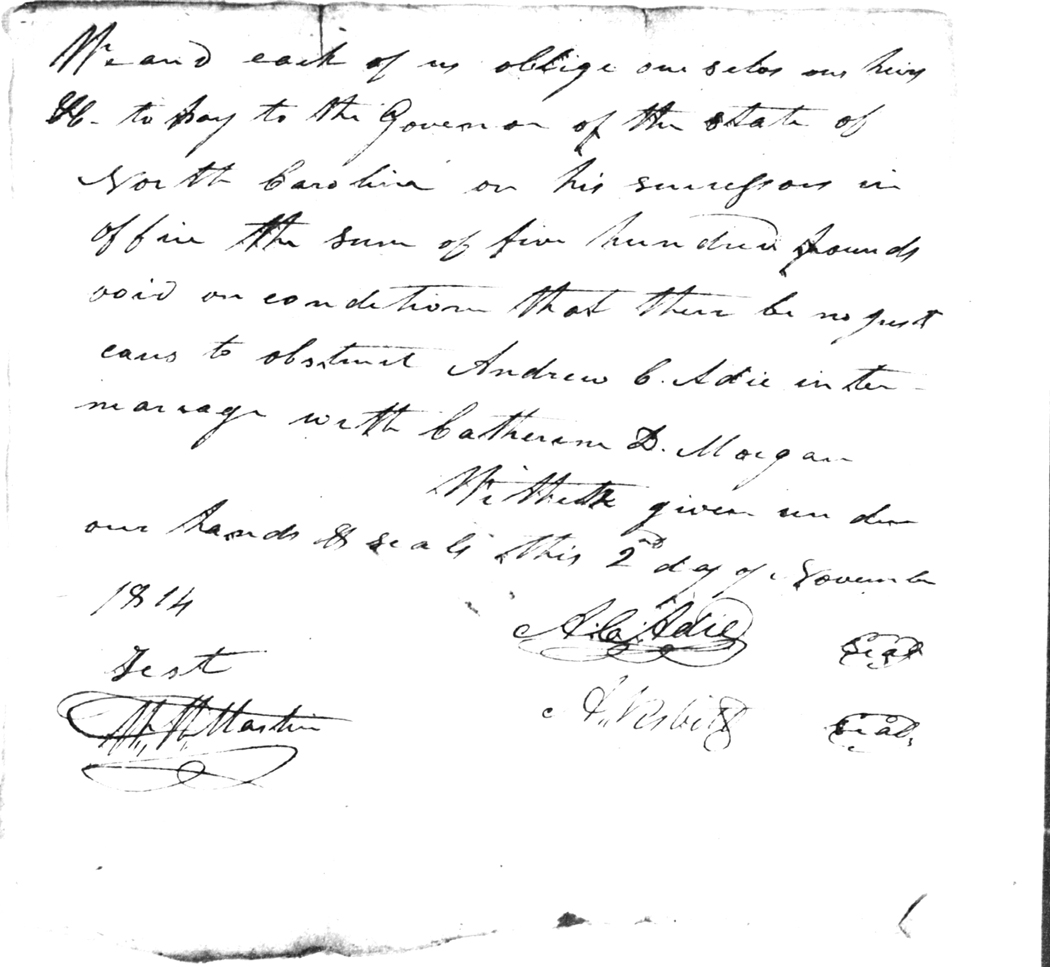 We and each of us oblige our selvs our heirs
&c. to pay to the Governor of the state of
North Carolina or his successors in
office the sum of five hundred pounds
void on condition that there be no just
caus to obstruct Andrew C. Adie inter-
marriage with Catherine D. Morgan
Witness given under
our hands & seals this 2nd day of November
1814
Test
A. C. Adie Seal
A. Nesbitt Seal
Martin